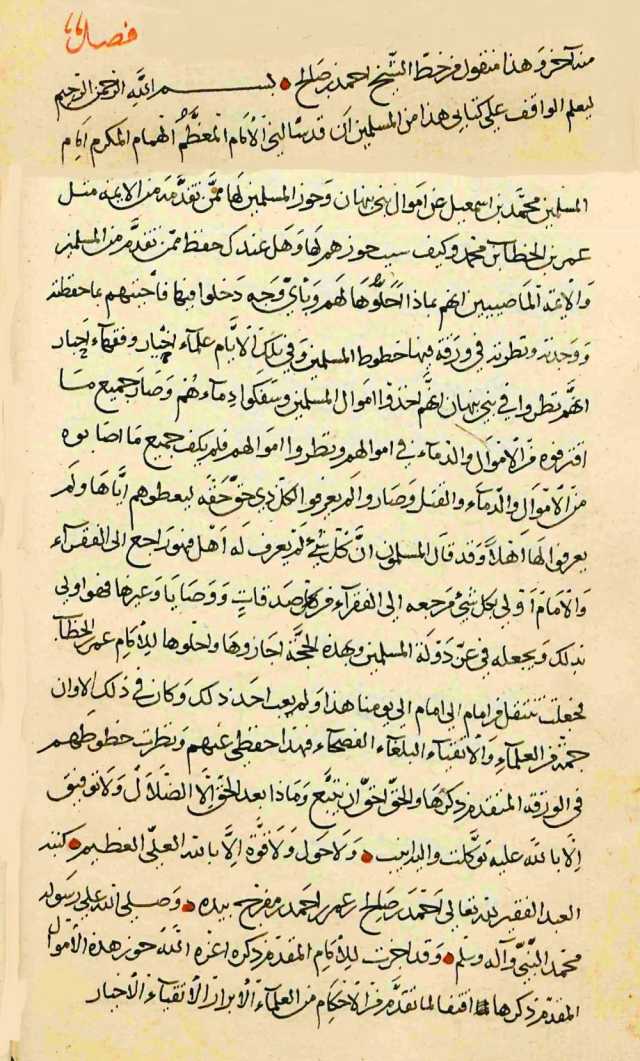 فصل
منه آخر وهذا منقول من خط الشيخ احمد بن صالح بسم الله الرحمن الرحيم
ليعلم الواقف على كتابي هذا من المسلمين ان قد سألني الامام المعظم الهمام المكرم امام
المسلمين محمد بن اسمعيل عن اموال بني نبهان وحوز المسلمين لها ممن تقدم من الايمة مثل
عمر بن الخطاب بن محمد وكيف سبب حوزهم لها وهل عندك حفظ ممن تقدم من المسلمين
والايمة الماضيين انهم بماذا احلوها لهم وبأي وجه دخلوا فيها فأجبتهم بما حفظته
ووجدته ونظرته في ورقة فيها خطوط المسلمين وفي تلك الايام علماء اخيار وفقهاء احبار
انهم نظروا في بني نبهان انهم اخذوا اموال المسلمين وسفكوا دماءهم وصار جميع ما
اقترفوه من الاموال والدماء في اموالهم ونظروا اموالهم فلم يكف جميع ما اصابوه
من الاموال والدماء والقتل وصاروا لم يعرفوا لكل ذي حق حقه ليعطوهم اياها ولم
يعرفوا لها اهلا وقد قال المسلمون ان كل شيء لم يعرف له اهل فهو راجع الى الفقراء
والامام اولى بكل شيء مرجعه الى الفقراء من كل صدقات ووصايا وغيرها فهو اولى
بذلك ويجعله في عز دولة المسلمين وبهذه الحجة اجازوها واحلوها للامام عمر بن الخطاب
فجعلت تنتقل من امام الى امام الى يومنا هذا ولم يعب احد ذلك وكان في ذلك الاوان
جمة من العلماء والاتقياء البلغاء الفصحاء فهذا حفظي عنهم ونظرت خطوطهم
في الورقة المتقدم ذكرها والحق احق ان يتبع وماذا بعد الحق الا الضلال ولا توفيق
الا بالله عليه توكلت واليه انيب ولا حول ولا قوة الا بالله العلي العظيم كتبه
العبد الفقير لله تعالى احمد بن صالح بن عمر بن احمد بن مفرج بيده وصلى الله على رسوله
محمد النبي وآله وسلم وقد اجزت للامام المقدم ذكره اعزه الله حوز هذه الاموال
المقدم ذكرها اقتفا لما تقدم من الاحكام من العلماء الابرار الاتقياء الاخيار